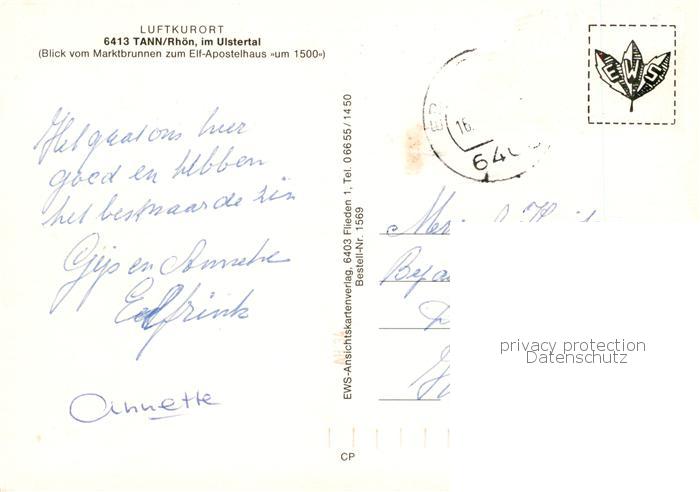 LUFTKURORT
6413 TANN/Rhön, im Ulstertal
(Blick vom Marktbrunnen zum Elf-Apostelhaus »um 1500«)
Het gaat ons hier
goed en hebben
het best naar de zin
Gijs en Anneke
Annette
EWS-Ansichtskartenverlag, 6403 Flieden 1, Tel. 0 66 55 / 14 50
Bestell-Nr. 1569
EWS
16.
privacy protection
Datenschutz
CP